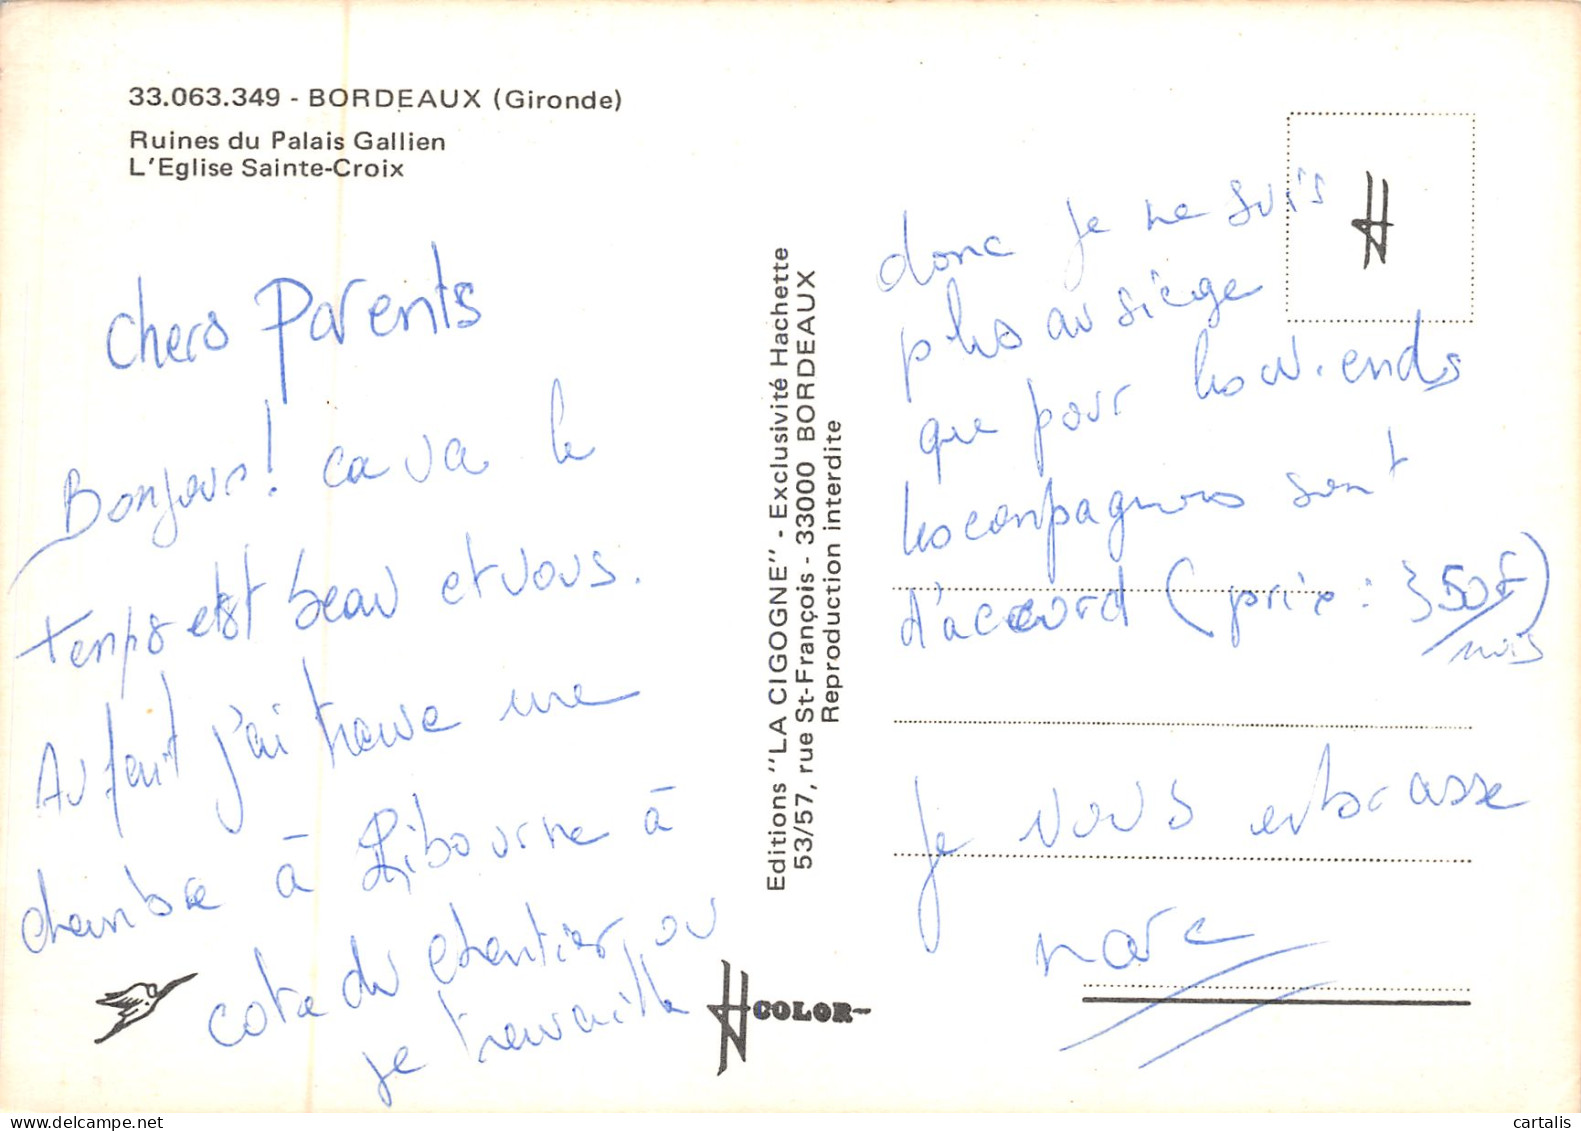 33.063.349 - BORDEAUX (Gironde)
Ruines du Palais Gallien
L'Eglise Sainte-Croix
chers Parents
Bonjour! ca va le
temps est beau et vous.
Au fait j'ai trouve une
chambre à Libourne à
cote du chantier, ou
je travaille
Editions "LA CIGOGNE" - Exclusivité Hachette
53/57, rue St-François - 33000 BORDEAUX
Reproduction interdite
COLOR
donc je ne suis
plus au siège
que pour les W.ends
les compagnons sont
d'accord (prix : 350F/mois)
Je vous embrasse
Marc
cartalis